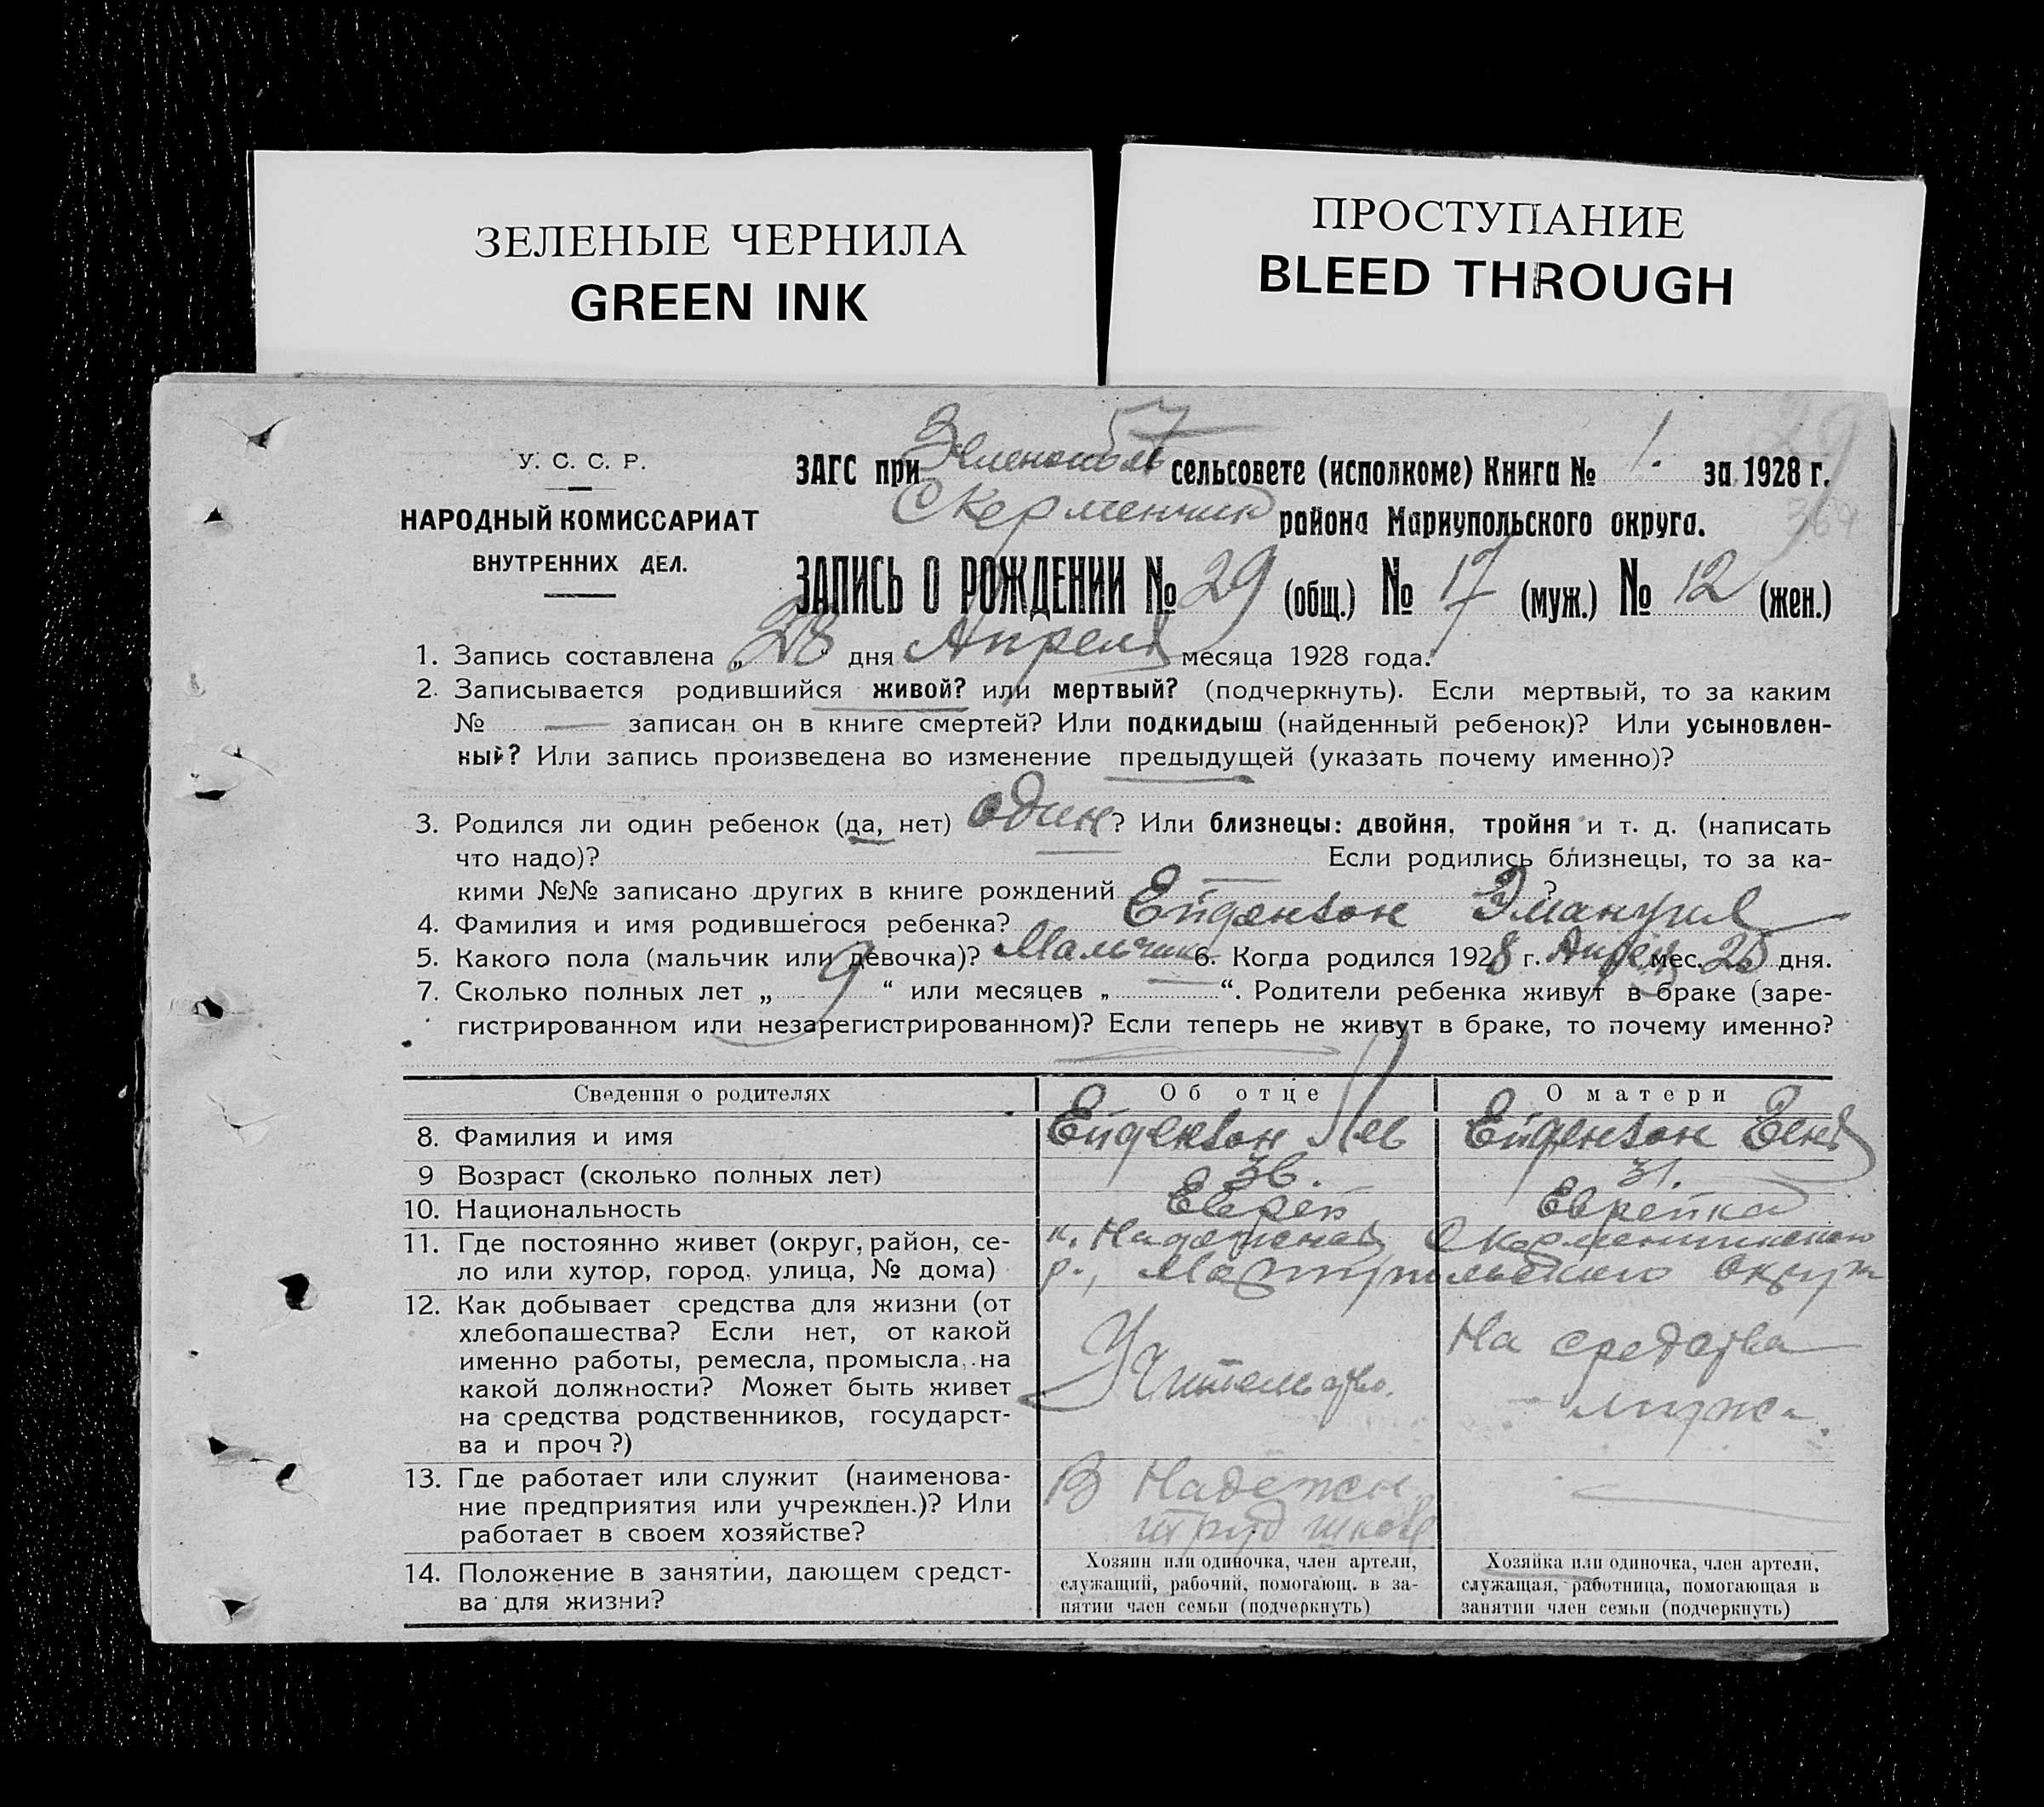 ЗЕЛЕНЫЕ ЧЕРНИЛА
GREEN INK
ПРОСТУПАНИЕ
BLEED THROUGH
57
29
369
У. С. С. Р.
НАРОДНЫЙ КОМИССАРИАТ
ВНУТРЕННИХ ДЕЛ.
ЗАГС при Зеленополь сельсовете (исполкоме) Книга № 1. за 1928 г.
Скерменчик района Мариупольского округа.
ЗАПИСЬ О РОЖДЕНИИ № 29 (общ.) № 17 (муж.) № 12 (жен.)
1. Запись составлена „ 28 " дня Апреля месяца 1928 года.
2. Записывается родившийся живой? или мертвый? (подчеркнуть). Если мертвый, то за каким
№ — записан он в книге смертей? Или подкидыш (найденный ребенок)? Или усыновлен-
ный? Или запись произведена во изменение предыдущей (указать почему именно)?
3. Родился ли один ребенок (да, нет) один? Или близнецы: двойня, тройня и т. д. (написать
что надо)? Если родились близнецы, то за ка-
кими №№ записано других в книге рождений — ?
4. Фамилия и имя родившегося ребенка? Ейдензон Эмануил
5. Какого пола (мальчик или девочка)? Мальчик 6. Когда родился 1928 г. Апреля мес. 20 дня.
7. Сколько полных лет „ 9 “ или месяцев „ — “. Родители ребенка живут в браке (заре-
гистрированном или незарегистрированном)? Если теперь не живут в браке, то почему именно?
Сведения о родителях Об отце О матери
8. Фамилия и имя Ейдензон Лев Ейдензон Геня
9 Возраст (сколько полных лет) 36. 31.
10. Национальность Еврей Еврейка
11. Где постоянно живет (округ, район, се-
ло или хутор, город, улица, № дома)
к. Надежная, Скерменчикского
р., Мариупольского Округа
12. Как добывает средства для жизни (от
хлебопашества? Если нет, от какой
именно работы, ремесла, промысла, на
какой должности? Может быть живет
на средства родственников, государст-
ва и проч?)
Учительство.
На средства
мужа.
13. Где работает или служит (наименова-
ние предприятия или учрежден.)? Или
работает в своем хозяйстве?
В Надежн.
труд школе
—
14. Положение в занятии, дающем средст-
ва для жизни?
Хозяин или одиночка, член артели,
служащий, рабочий, помогающ. в за-
нятии член семьи (подчеркнуть)
Хозяйка или одиночка, член артели,
служащая, работница, помогающая в
занятии член семьи (подчеркнуть)